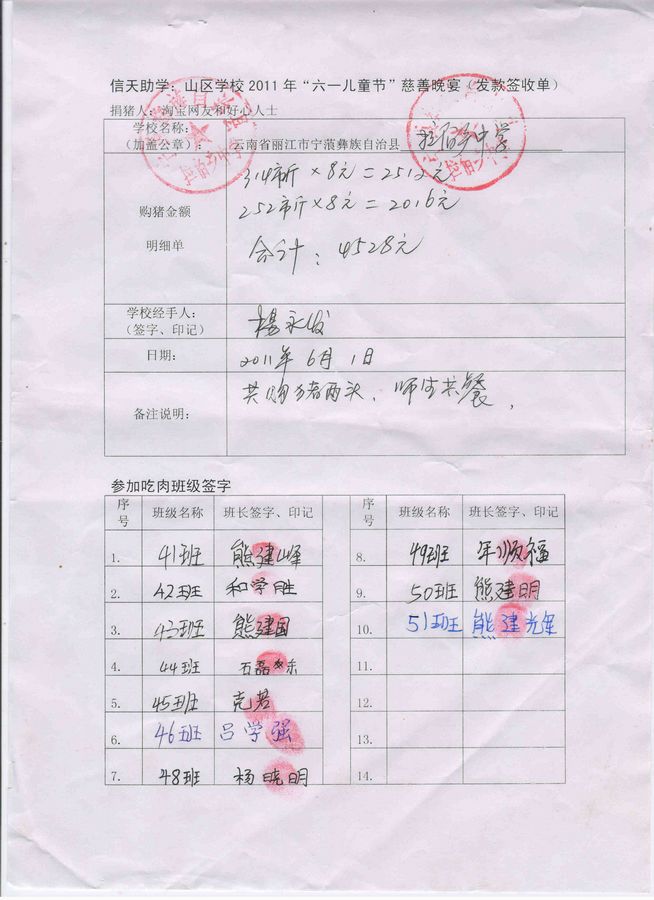 信天助学：山区学校 2011 年“六一儿童节”慈善晚宴（发款签收单）
捐猪人：淘宝网友和好心人士
学校名称：
（加盖公章）： 云南省丽江市宁蒗彝族自治县 拉伯乡中学
314市斤 × 8元 = 2512元
252市斤 × 8元 = 2016元
购猪金额
明细单 合计：4528元
学校经手人：
（签字、印记） 杨永发
日期： 2011年 6月 1日
备注说明： 共购猪两头、师生共餐，
参加吃肉班级签字
序号 班级名称 班长签字、印记 序号 班级名称 班长签字、印记
1. 41班 熊建峰 8. 49班 年顺福
2. 42班 和学胜 9. 50班 熊建明
3. 43班 熊建国 10. 51班 熊建光
4. 44班 石磊 11.
5. 45班 克若 12.
6. 46班 吕学强 13.
7. 48班 杨晓明 14.